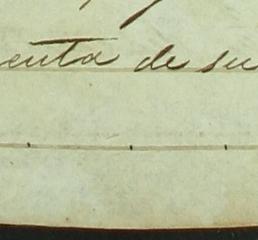 enta de su